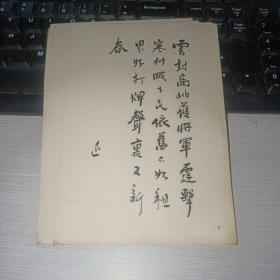 雲封高岫護將軍霆擊
寒村滅下民依舊不如租
界好打牌聲裏又新
春
迅